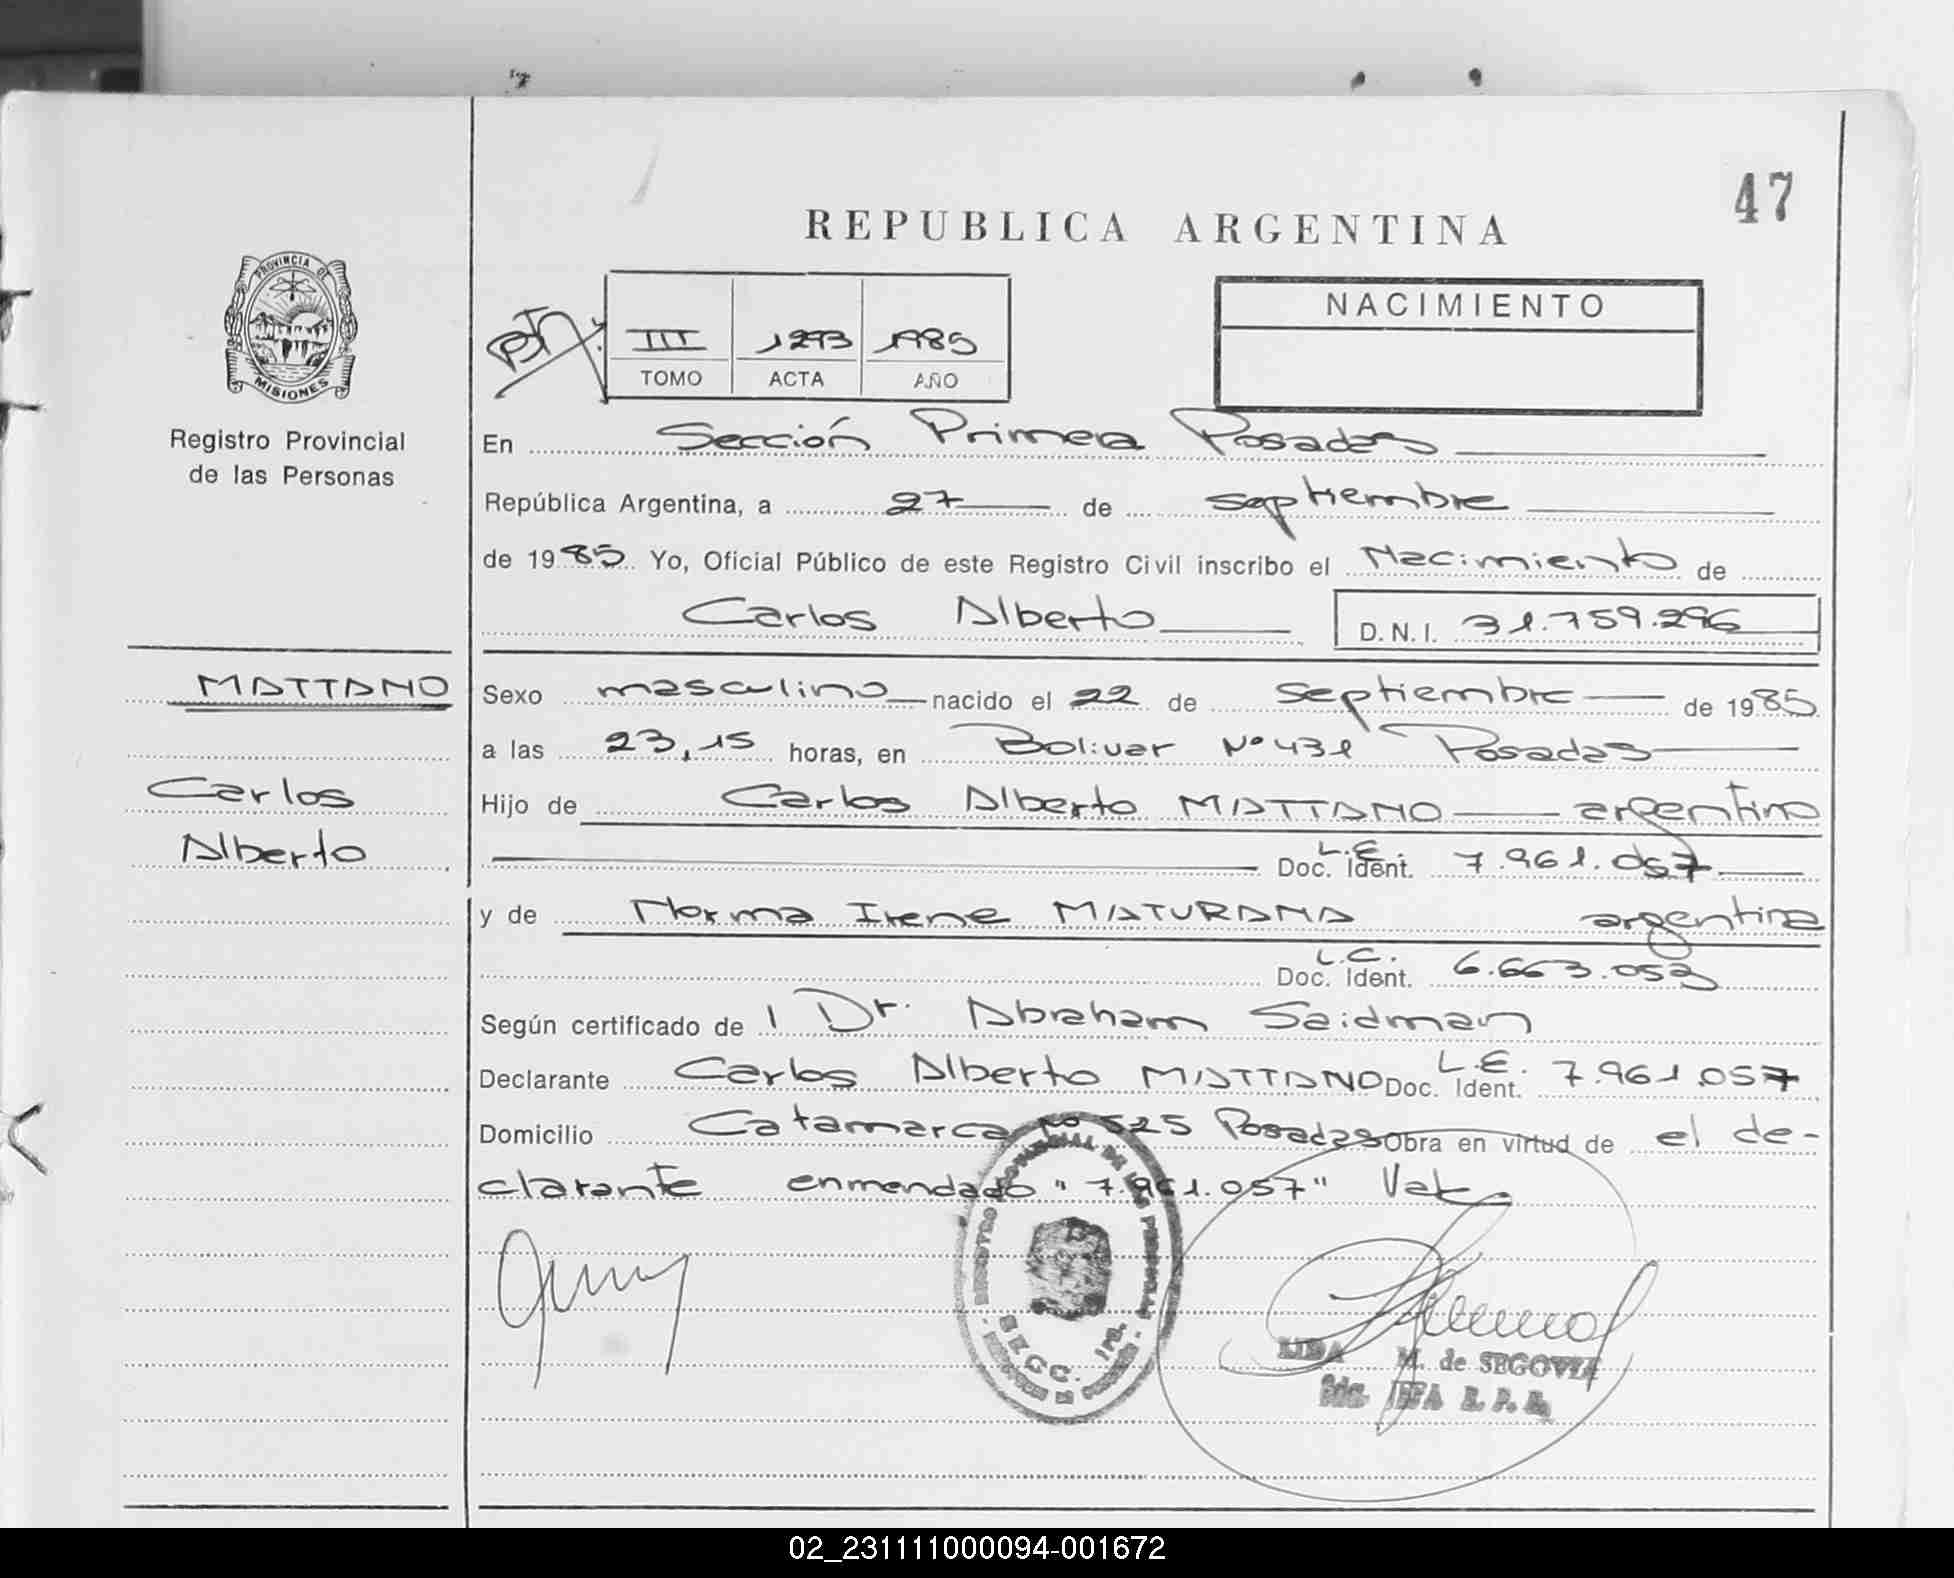 47
REPUBLICA ARGENTINA
PROVINCIA DE
MISIONES
Registro Provincial
de las Personas
III 1293 1985
TOMO ACTA AÑO
NACIMIENTO
En Sección Primera Posadas
República Argentina, a 27 de septiembre
de 1985 Yo, Oficial Público de este Registro Civil inscribo el Nacimiento de
Carlos Alberto D.N.I. 31.759.296
MATTANO
Carlos
Alberto
Sexo masculino nacido el 22 de septiembre de 1985
a las 23,15 horas, en Bolivar Nº 431 Posadas
Hijo de Carlos Alberto MATTANO argentino
L.E.
Doc. Ident. 7.961.057
y de Norma Irene MATURANA argentina
L.C.
Doc. Ident. 6.663.053
Según certificado de 1 Dr. Abraham Saidman
Declarante Carlos Alberto MATTANO Doc. Ident. L.E. 7.961.057
Domicilio Catamarca Nº 525 Posadas Obra en virtud de el de-
clarante enmendado "7.961.057" Vale.
REGISTRO PROVINCIAL DE LAS PERSONAS
SECC. 1ra.
LIDA M. de SEGOVIA
JEFA R. P. P.
02_231111000094-001672